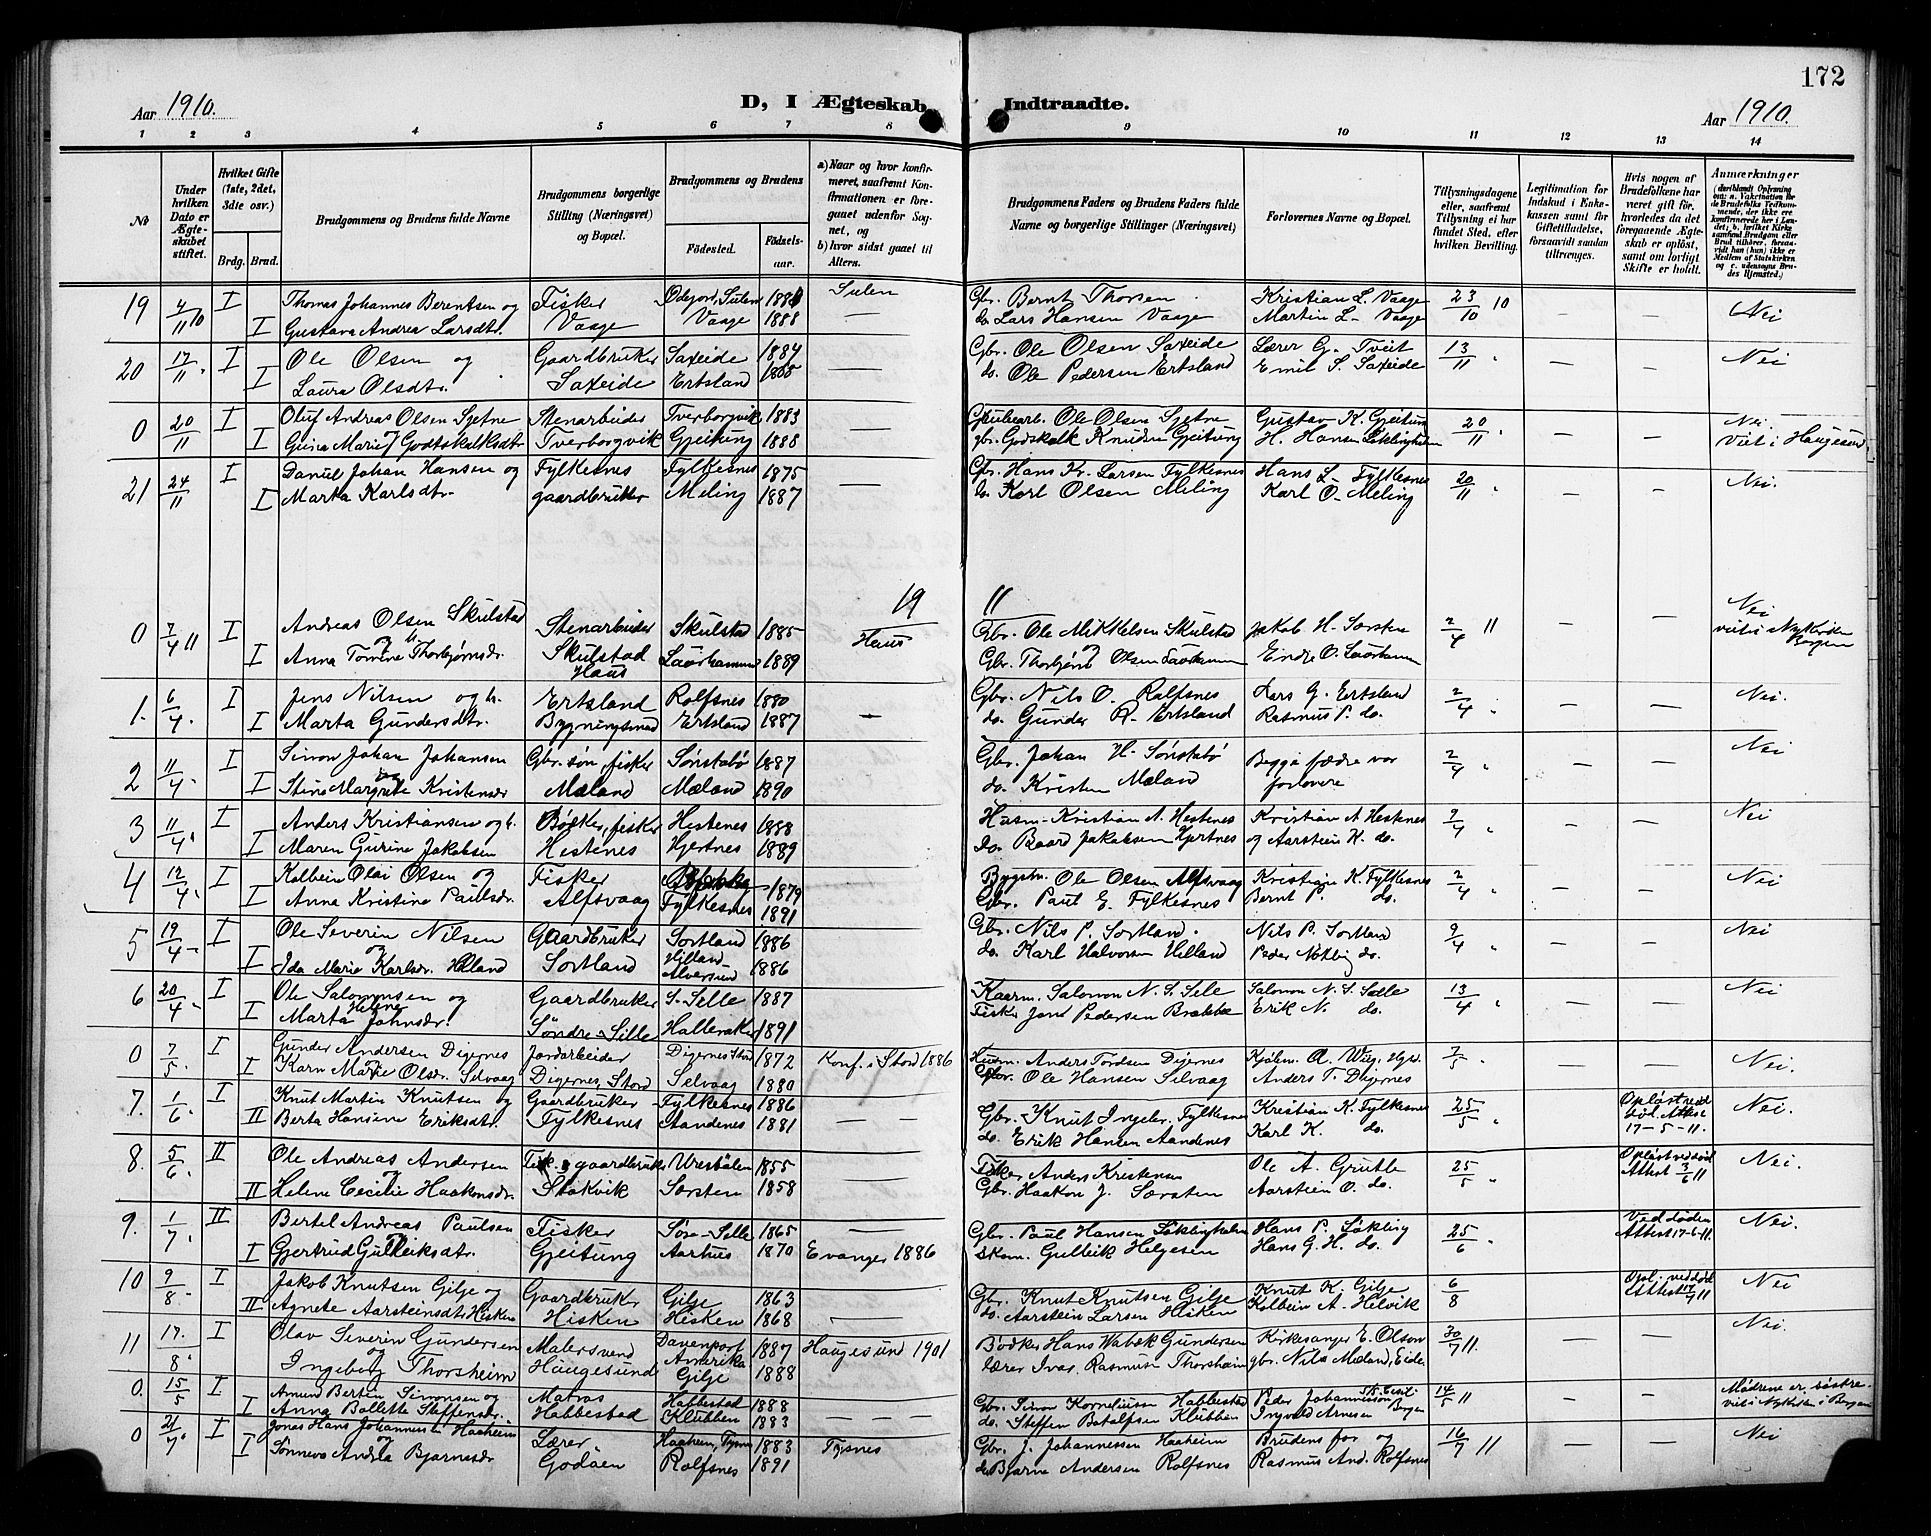 172
Aar 1910.
D, I Ægteskab Indtraadte.
Aar 1910.
1 2 3 4 5 6 7 8 9 10 11 12 13 14
No
Under hvilken Dato er Ægteskabet stiftet.
Hvilket Gifte (1ste, 2det, 3die osv.)
Brdg. Brud.
Brudgommens og Brudens fulde Navne
Brudgommens borgerlige Stilling (Næringsvei) og Bopæl.
Brudgommens og Brudens
Fødested. Fødsels-aar.
a) Naar og hvor konfirmeret, saafremt Konfirmationen er foregaaet udenfor Sognet, og
b) hvor sidst gaaet til Alters.
Brudgommens Faders og Brudens Faders fulde Navne og borgerlige Stillinger (Næringsvei)
Forlovernes Navne og Bopæl.
Tillysningsdagene eller, saafremt Tillysning ei har fundet Sted, efter hvilken Bevilling.
Legitimation for Indskud i Enkekassen samt for Giftetilladelse, forsaavidt saadan tiltrænges.
Hvis nogen af Brudefolkene har været gift før, hvorledes da det foregaaende Ægteskab er opløst, samt om lovligt Skifte er holdt.
Anmærkninger
19 4/11 10 I Thomas Johannes Berentsen og Fisker Sulen Gbr. Bernt Thorsen Kristian L. Vaage 23/10 10 Nei
I Gustava Andrea Larsdtr. Vaage Vaage 1888 — do. Lars Hansen Vaage Martin L. Vaage
20 17/11 I Ole Olsen og Gaardbruker Saxeide 1884 Gbr. Ole Olsen Saxeide Lærer G. Tveit 13/11 — — Nei
I Laura Olsdtr. Saxeide Ertsland — do. Ole Pedersen Ertsland Emil S. Saxeide
0 20/11 I Oluf Andreas Olsen Sjetne Stenarbeider Tverborgvik 1883 — Ole Olsen Sjetne Gustav K. Gjeitung 20/11 — — Nei.
I Gurina Marie Godtskalksdtr Tverborgvik Gjeitung 1888 gbr. Godskalk Knudsen Gjeitung H. Hansen Løklingholm Viet i Haugesund
21 24/11 I Daniel Johan Hansen og Fylkesnes Fylkesnes 1875 — Gbr. Hans Kr. Larsen Fylkesnes Hans L. Fylkesnes 20/11 — — Nei.
I Marta Karlsdtr. gaardbruker Meling 1887 do. Karl Olsen Meling Karl O. Meling
19 11
0 7/4 11 I Andreas Olsen Skulstad Stenarbeider Skulstad 1885 Haus Gbr. Ole Mikkelsen Skulstad Jakob H. Sørsten 2/4 11 — — Nei
og
I Anna Tomine Thorbjørnsdr. Skulstad Haus 1889 Gbr. Thorbjørn Olsen Endre O. viet i Nykirken Bergen
1. 6/4 I Jens Nilsen og Ertsland Rolfsnes 1880 Gbr. Nils O. Rolfsnes Lars G. Ertsland 2/4 — — Nei
I Marta Gundersdtr. Bygningsmed Ertsland 1887 — do. Gunder R. Ertsland Rasmus P. do.
2 11/4 I Simon Johan Johansen Gbr. søn, fisker Sønstabø 1887 Gbr. Johan H. Sønstabø Begge fædre var 2/4 — — Nei
og
I Stina Margrete Kristensdr Mæland Mæland 1890 do. Kristen Mæland forlovere
3 11/4 I Anders Kristiansen og Bødker, fisker Hestenes 1888 Husm. Kristian A. Hestenes Kristian A. Hestenes 9/4 — — Nei
I Maren Gurine Jakobsen Hestenes Hjertnes 1889 do. Baard Jakobsen Hjertnes og Aarstein K. do.
4 12/4 I Kolbein Olai Olsen og Fisker 1879 Bygsbr. Ole Olsen Alfsvaag Kristian K. Fylkesnes 2/4 — — Nei
I Anna Kristine Paulsdr. Alfsvaag Fylkesnes 1891 Gbr. Paul E. Fylkesnes Bernt P. do.
5 19/4 I Ole Severin Nilsen Gaardbruker Sortland 1886 Gbr. Nils P. Sortland. Nils P. Sortland 9/4 — — Nei
og
I Ida Marie Karlsdr. Helland Sortland Hilland Alversund 1886 do. Karl Halvorsen Hilland Peder do.
6 20/4 I Ole Salomonsen og Gaardbruker S. Selle 1887 Kaarm. Salomon N. S. Sele Salomon N. S. Selle 13/4 — — Nei
I Marta Helene Johnsdr. Søndre Sille Halleraker 1891 Fisker John Pedersen Brekke Erik N. do.
0 7/5 I Gunder Andersen Digernes Jordarbeider Digernes Stord 1872 Konf. i Stord 1886 Husm. Anders Tordsen Digernes Kjøbm. A. Wiig, 7/5 — — Nei.
I Karn Marie Olsdr. Selvaag Digernes, Stord Selvaag 1880 Gbr. Ole Hansen Selvaag Anders T. Digernes
7. 1/6 I Knut Martin Knutsen og Gaardbruker Fylkesnes 1886 Gbr. Knut Ingebr. Fylkesnes Kristian K. Fylkesnes 25/5 Opløst ved død. Attest 17-5-11. Nei.
II Berta Hansine Eriksdtr. Fylkesnes Aandenes 1881 — do. Erik Hansen Aandenes Karl K. do.
8. 5/6 II Ole Andreas Andersen Fisk. og gaardbruker Urestølen 1855 Fisker Anders Kristensen Ole A. Grutle 25/5 Opløst ved død Attest 3/6 11 Nei.
og
II Helene Cecilie Haakonsdr. Stokvik Sørsten 1858 — Gbr. Haakon J. Sørsten Aarstein O. do.
9. 1/7 II Bertel Andreas Paulsen Fisker Søre-Selle 1865 — Gbr. Paul Hansen Løklingholm Hans P. Løkling 25/6 Ved døden Attest 17-6-11. Nei.
I Gjertrud Gulleiksdtr. Gjeitung Aarhus 1870 Evanger 1886 Skom. Gulleik Helgesen Hans G. H. do.
10 9/8 I Jakob Knutsen Gilje Gaardbruker Gilje 1863 Gbr. Knut Knutsen Gilje Knut K. Gilje 6/8 Opl. ved død Attest 17/7 11 Nei
II Agnete Aarsteinsdtr. Hisken Hisken Hisken 1868 — do. Aarstein Larsen Hisken Kolbein A. Helvik
11 17./8 I Olav Severin Gundersen Malersvend Davenport Amerika 1887 Haugesund 1901 Bødker Hans Wabek Gundersen Kirkesanger E. Olson 30/7 11. — — Nei.
og
Ingeborg Thorsheim Haugesund Gilje 1888 Lærer Ivar Rasmus Thorsheim gbr. Nils Mæland, Eide.
0. 15/5 I Amund Bertin Simonsen og Matros Habbestad 1888 Gbr. Simon Korneliussen Habbestad Peder Johannesson Bergen 14/5 11 — — Mødrene er søstre.
I Anna Bollette Steffensdr. Habbestad Klubben 1883 — — — do. Steffen Botolfsen Klubben Ingvald Arnesen viet i Nykirken i Bergen
0 21/7 I Jonas Hans Johannessen Haaheim Lærer Haaheim, Tysnes 1883 Tysnes Gbr. J. Johannessen Haaheim Brudens far og 16/7 11 — — Nei
I Sønneva Andrea Bjarnesdr Godøen Rolfsnes 1891 do Bjarne Andersen Rolfsnes Rasmus And. Rolfsnes